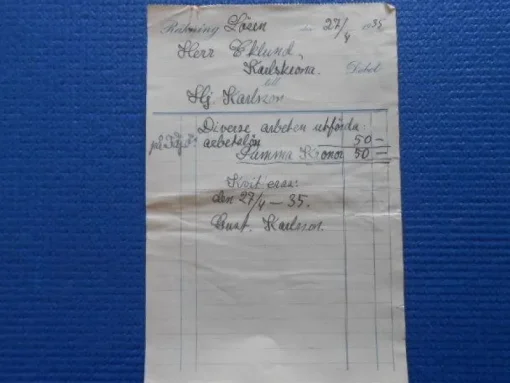 Räkning Lösen den 27/4 1935
Herr Eklund
Karlskrona. Debet
till
Hj. Karlsson
Diverse arbeten utförda
arbetslön 50 –
Summa Kronor 50 –
Kvitteras:
den 27/4 – 35.
Karlsson.